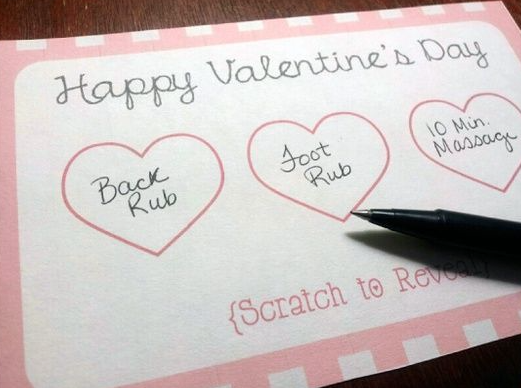 Happy Valentine's Day
Back
Rub
Foot
Rub
10 Min.
Massage
{Scratch to Reveal}